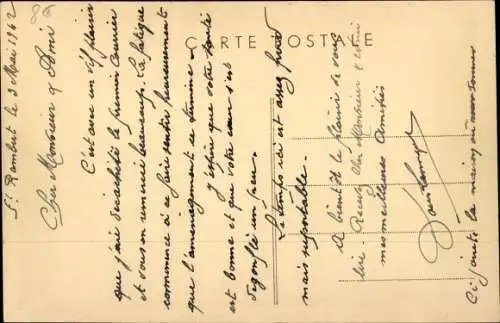 St Rambert le 3 Mai 1962
Cher Monsieur & Ami
C'est avec un vif plaisir
que j'ai décacheté le premier courrier
et vous en remercie beaucoup. La fatigue
commence à se faire sentir heureusement
que l'aménagement se termine.
J'espère que votre santé
est bonne et que votre cœur s'est
dégonflé un peu.
CARTE POSTALE
Le temps ici est assez froid
mais supportable.
A bientôt le plaisir de vous
lire. Recevez Cher Monsieur & Ami
mes meilleures Amitiés
Ci joint la maison où nous sommes